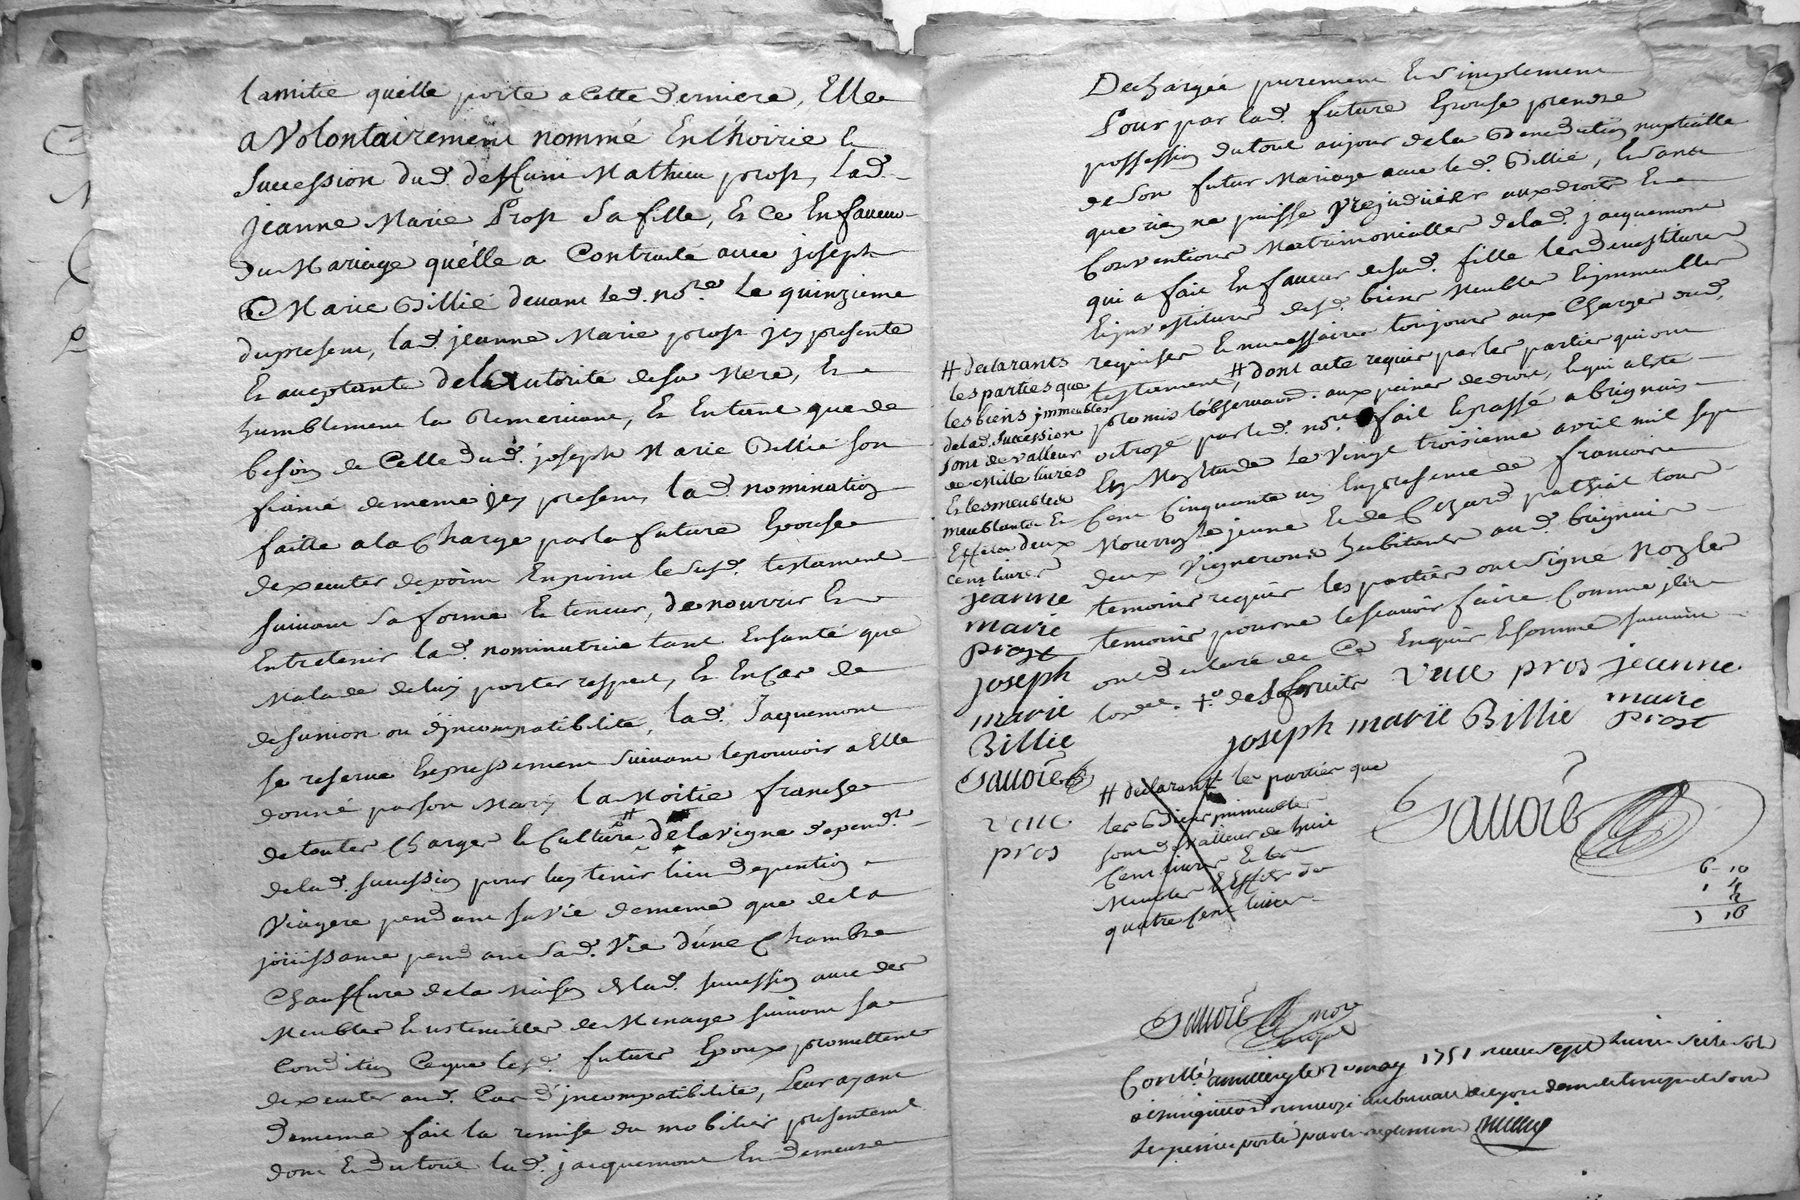 lamitié quelle porte a Cette derniere, Elle
a Volontairement nommé En l'hoirie Et
Succession dud. deffunt Mathieu prost, lad.
jeanne Marie Prost Sa fille, Et Ce En faveur
du Mariage quélle a Contracté avec joseph
Marie Billié devant led. nore. Le quinzieme
du present, lad. jeanne Marie prost jcy presente
Et acceptante de Lautorité de sa Mere, Et
humblement la Remerciant, Et En tant que de
besoin de Celle dud. joseph Marie Billié son
fiancé de meme jcy present, lad. nomination
faitte a la Charge par la future Epouse
dexecuter de point En point le susd. testament
suivant Sa forme Et teneur, de nourrir Et
Entretenir lad. nominatrice tant En santé que
Malade de luy porter respect, Et En Cas de
desunion ou djncompatibilité, lad. Jaquemont
se reserve Expressement suivant le pouvoir a Elle
donné par son Mary la Moitié franche
de toutes Charges Et Culture de la vigne dependte.
de lad. succession pour luy tenir lieu de pention
Viagere pendant sa vie de meme que de la
joüissance pendant Sad. Vie d'une Chambre
Chauffure de la Maison de lad. succession avec des
Meubles Et ustencilles de Menage suivant sa
Condition Ce que lesd. futurs Epoux promettent
dexecuter aud. Cas djncompatibilité, Leur ayant
de meme fait la remise du mobilier presentement
dont Et du tout lad. jacquemont En demeure
Dechargée purement Et simplement
Pour par lad. future Epouse prendre
possession du tout au jour de la Benediction nuptialle
de Son futur Mariage avec led. Billié, Et sans
que rien ne puisse prejudicier aux droits Et
Conventions Matrimonialles de lad. jacquemont
qui a fait En faveur de sad. fille les devestitures
Et jnvestitures desd. biens Meubles Et jmmeubles
requises Et necessaires toujours aux Charges dud.
testament, # dont acte requis par les parties qui ont
promis Lobserva͞on. aux peines de droit, Et qui a eté
octroyé par led. nore. fait Et passé a brignais
En Mon Etude Le Vingt troisieme avril mil sept
Cent Cinquante un En presence de francois
Mourron le jeune Et de Cezard pathiot tous
deux Vignerons habitants aud. brignais
temoins requis les parties ont signé Non les
temoins pour ne le scavoir faire Comme jls
ont declaré de Ce Enquis Et sommé suivant
Lord.ce. +. de Ses fruits veuve pros jeanne
marie
prost
joseph marie Billie
# declarants
les parties que
les biens jmmeubles
de lad. succession
sont de valleur
de Mille livres
Et les meubles
meublants Et
Effets deux
cent livres
jeanne
marie
prost
joseph
marie
Billie
Savoie
veuve
pros
# declarant les parties que
les Biens jmmeubles
sont de Valleur de huit
Cent livres Et les
Meubles Et Effets de
quatre Cent livres
Savoie
6 10
1 4
Savoie
Conllé a millery le 2 may 1751